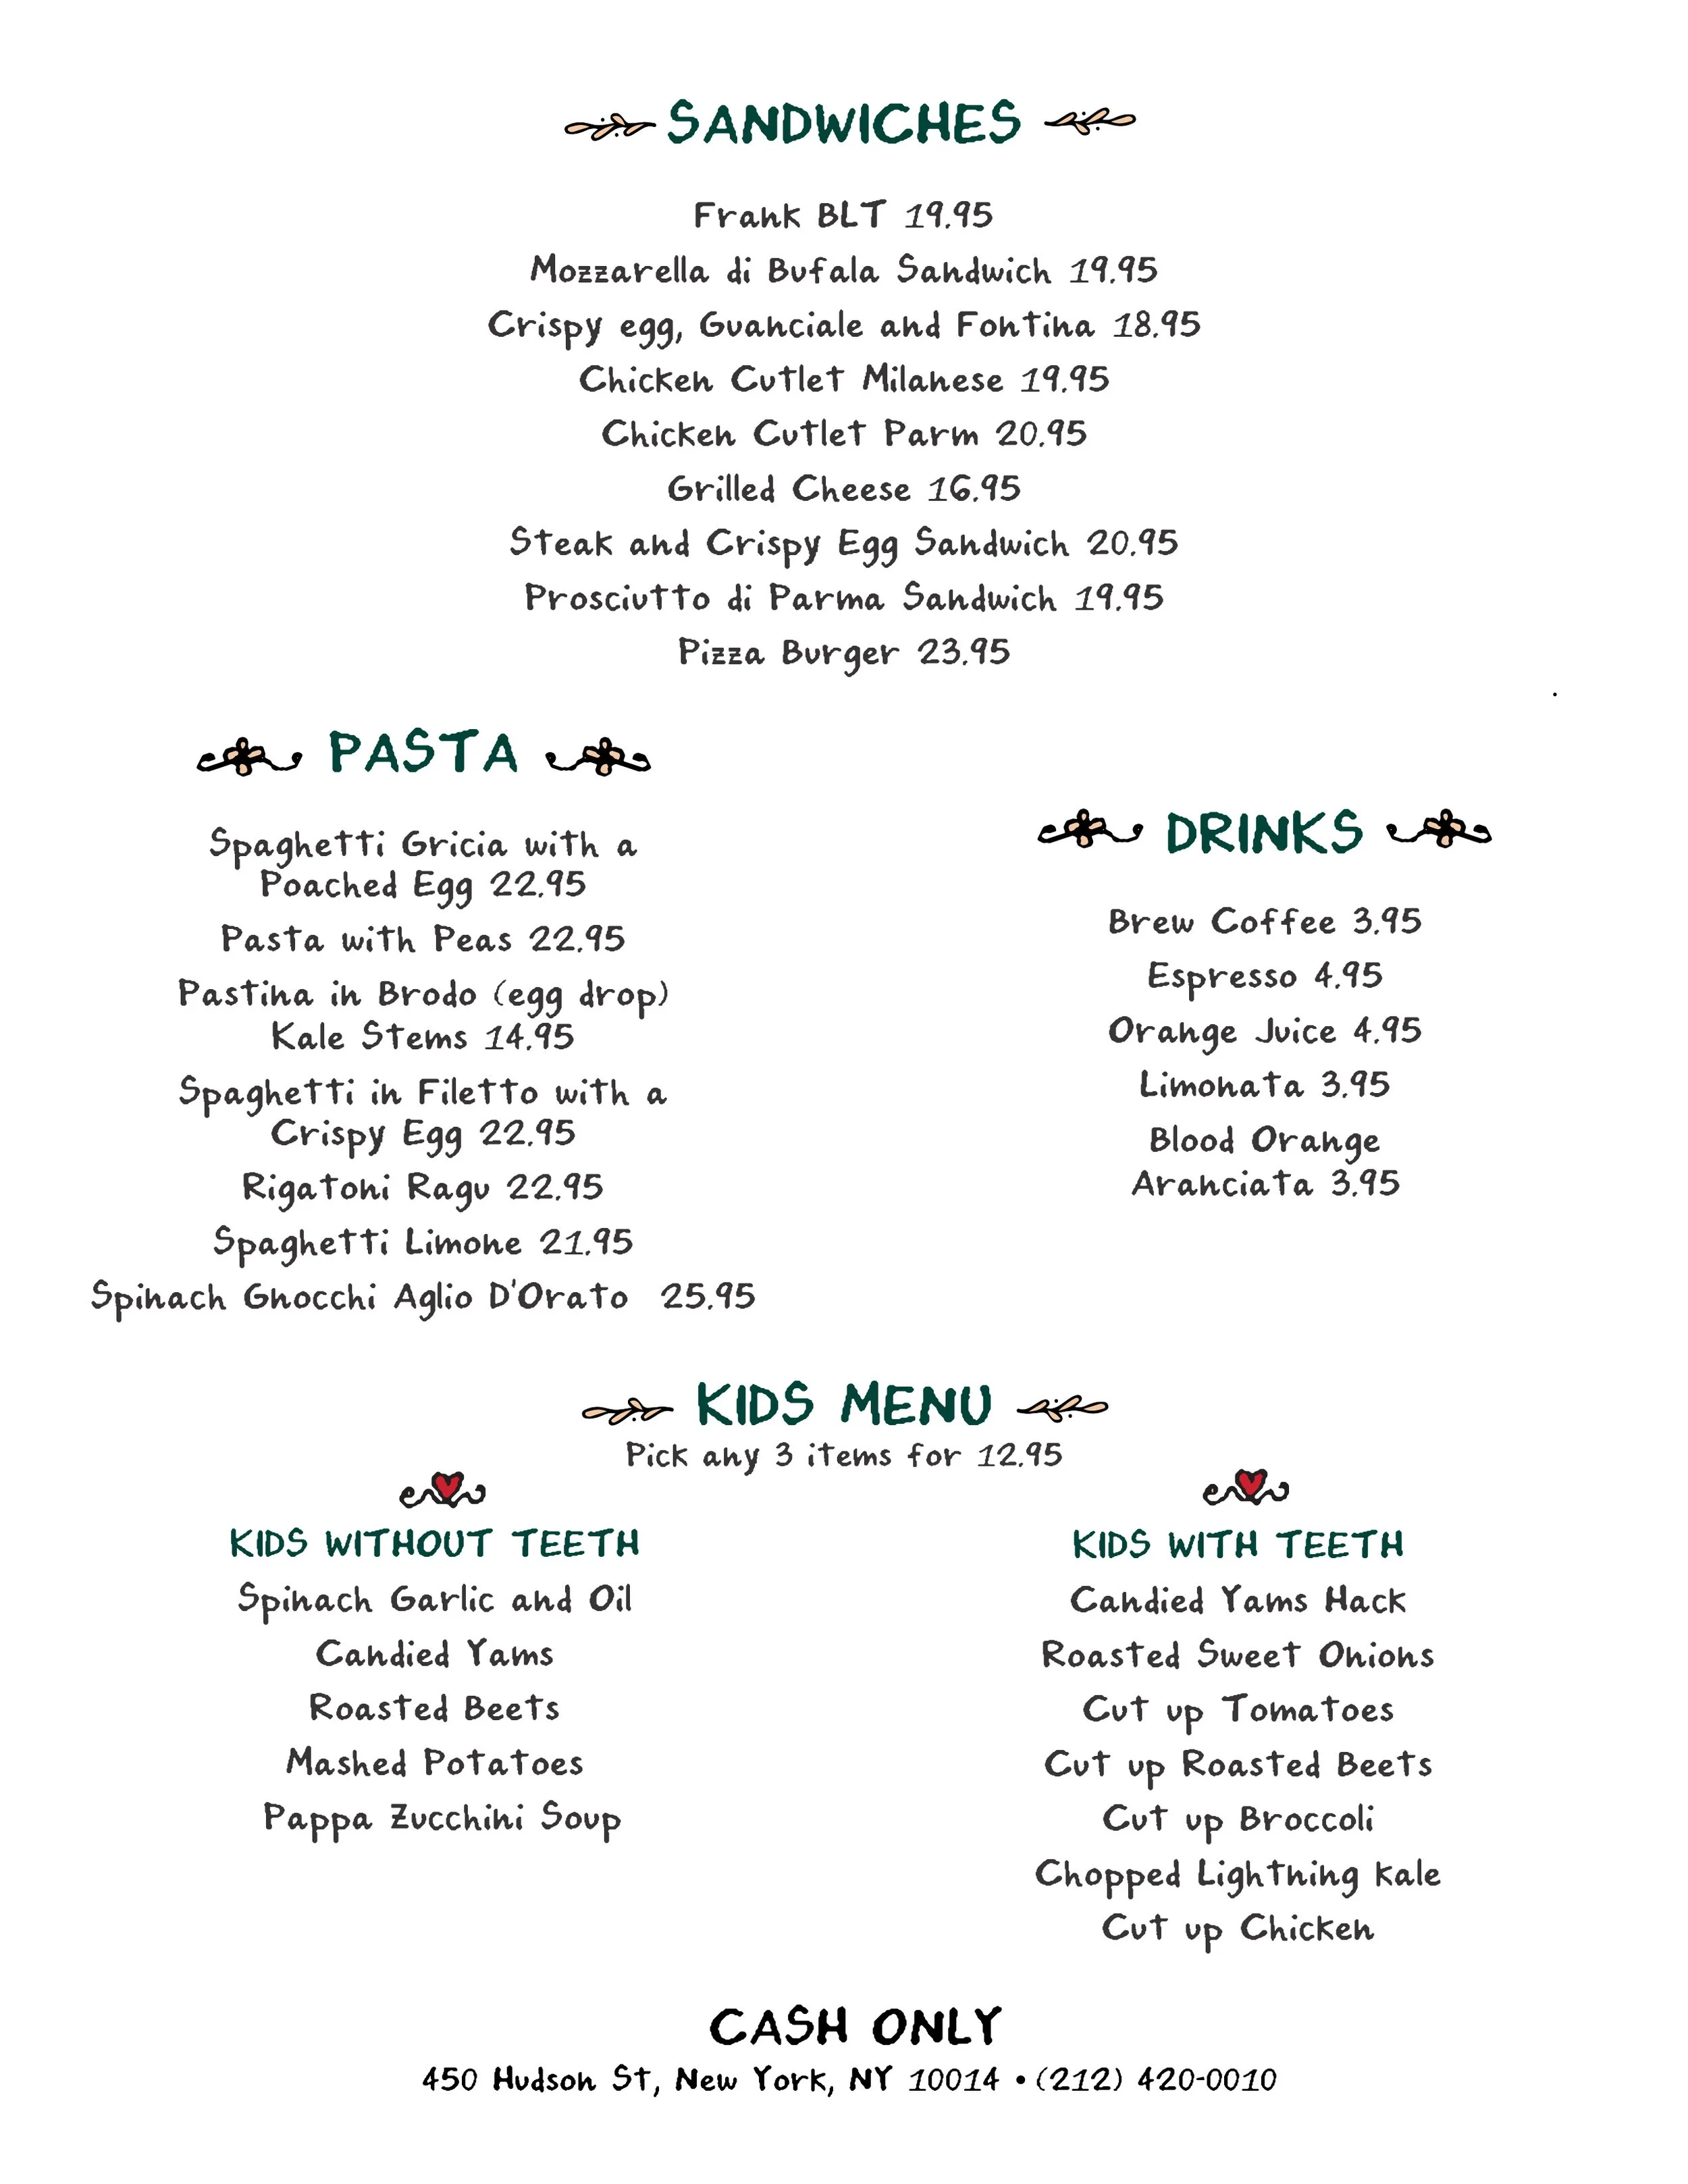 SANDWICHES
Frank BLT 19.95
Mozzarella di Bufala Sandwich 19.95
Crispy egg, Guanciale and Fontina 18.95
Chicken Cutlet Milanese 19.95
Chicken Cutlet Parm 20.95
Grilled Cheese 16.95
Steak and Crispy Egg Sandwich 20.95
Prosciutto di Parma Sandwich 19.95
Pizza Burger 23.95
PASTA
Spaghetti Gricia with a
Poached Egg 22.95
Pasta with Peas 22.95
Pastina in Brodo (egg drop)
Kale Stems 14.95
Spaghetti in Filetto with a
Crispy Egg 22.95
Rigatoni Ragu 22.95
Spaghetti Limone 21.95
Spinach Gnocchi Aglio D'Orato 25.95
DRINKS
Brew Coffee 3.95
Espresso 4.95
Orange Juice 4.95
Limonata 3.95
Blood Orange
Aranciata 3.95
KIDS MENU
Pick any 3 items for 12.95
KIDS WITHOUT TEETH
Spinach Garlic and Oil
Candied Yams
Roasted Beets
Mashed Potatoes
Pappa Zucchini Soup
KIDS WITH TEETH
Candied Yams Hack
Roasted Sweet Onions
Cut up Tomatoes
Cut up Roasted Beets
Cut up Broccoli
Chopped Lightning Kale
Cut up Chicken
CASH ONLY
450 Hudson St, New York, NY 10014 • (212) 420-0010